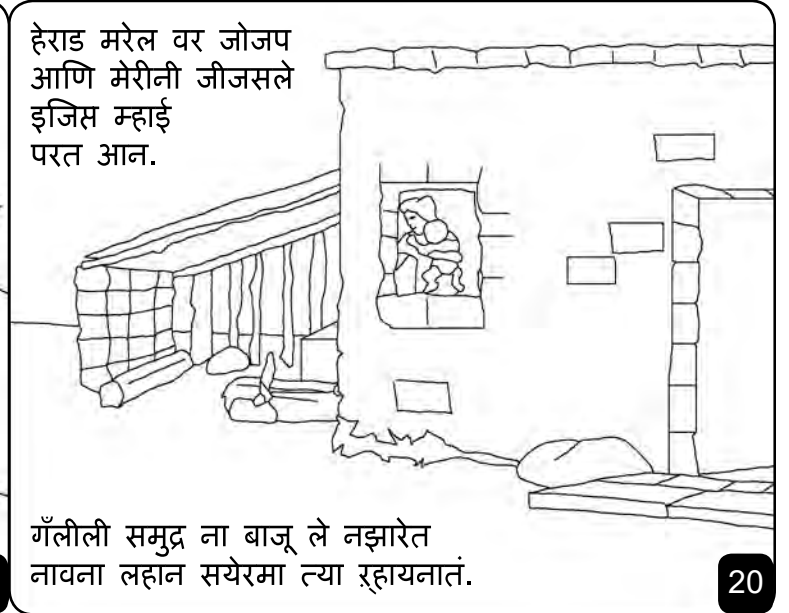 हेराड मरेल वर जोजप
आणि मेरीनी जीजसले
इजिप्त म्हाई
परत आन.
गँलीली समुद्र ना बाजू ले नझारेत
नावना लहान सयेरमा त्या ऱ्हायनातं.
20